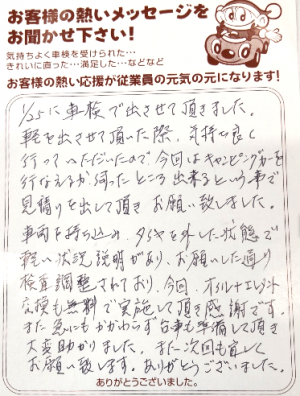 お客様の熱いメッセージを
お聞かせ下さい!
気持ちよく車検を受けられた…
きれいに直った…満足した…などなど
お客様の熱い応援が従業員の元気の元になります!
1/25に車検で出させて頂きました。
軽を出させて頂いた際、気持ち良く
行っていただいたので、今回はキャンピングカーを
行なえるか伺ったところ出来るという事で
見積りを出して頂きお願い致しました。
車両を持ち込み、タイヤを外した状態で
軽い状況説明があり、お願いした通り
検査調整されており、今回、オイルエレメント
交換も無料で実施して頂き感謝です。
また急にもかかわらず台車も準備して頂き
大変助かりました。また次回も宜しく
お願い致します。ありがとうございました。
ありがとうございました。